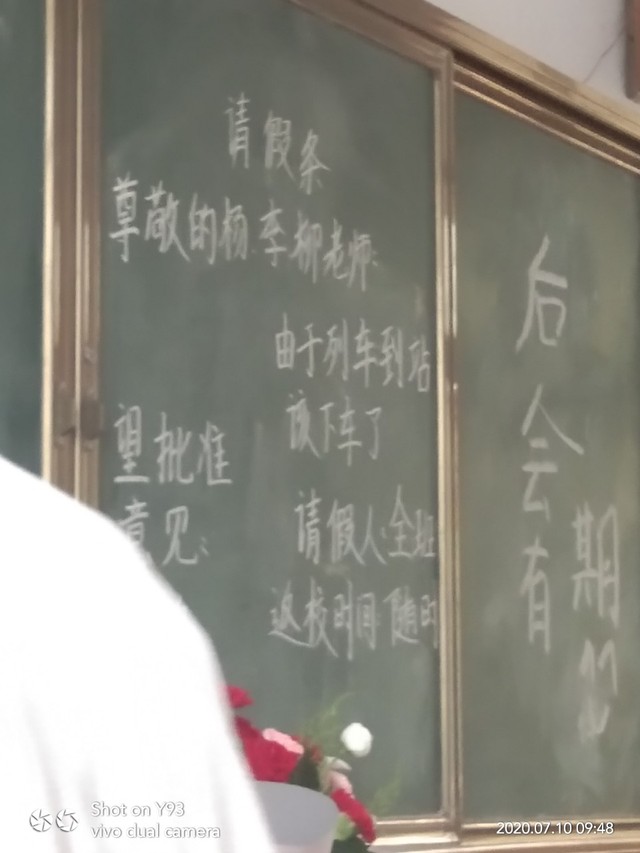 请假条
尊敬的杨李柳老师:
由于列车到站
该下车了
望批准
意见:
请假人:全班
返校时间:随时
后会有期
Shot on Y93
vivo dual camera
2020.07.10 09:48